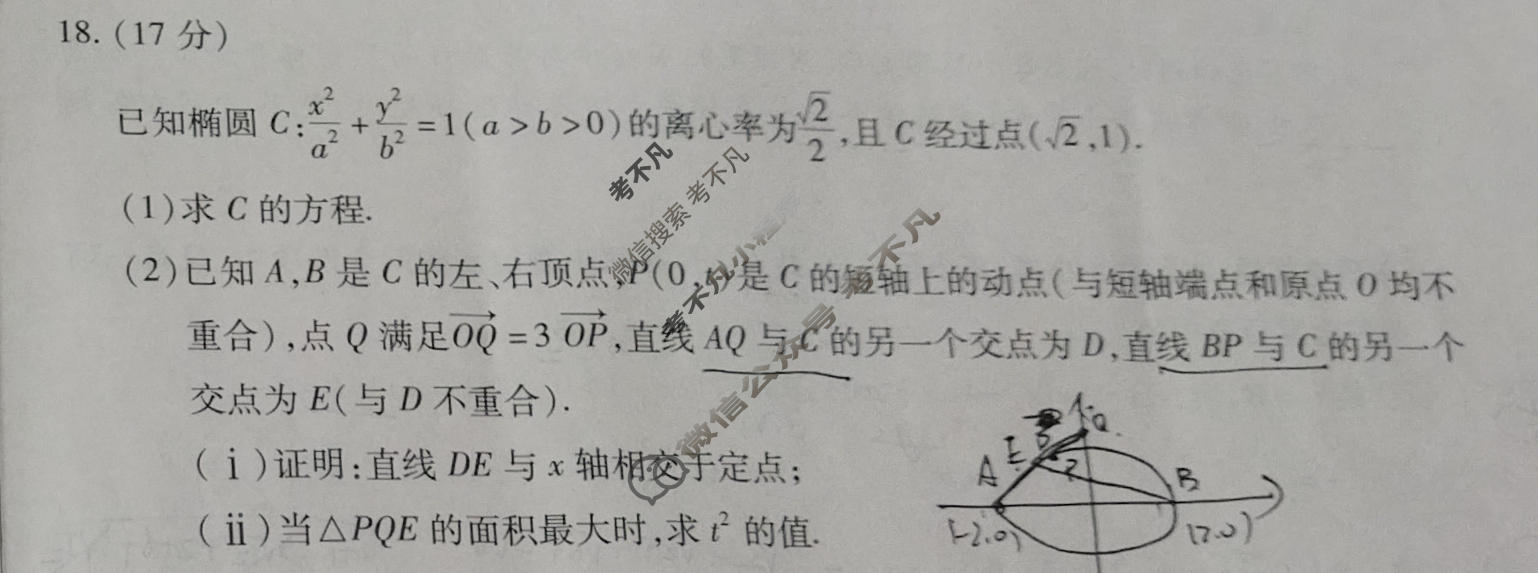 18. (17 分)
已知椭圆 C: x²/a² + y²/b² = 1(a>b>0)的离心率为√2/2,且 C 经过点(√2,1).
(1)求 C 的方程.
(2)已知 A,B 是 C 的左、右顶点,P(0,t)是 C 的短轴上的动点(与短轴端点和原点 O 均不
重合),点 Q 满足OQ→ = 3 OP→,直线 AQ 与 C 的另一个交点为 D,直线 BP 与 C 的另一个
交点为 E(与 D 不重合).
(ⅰ)证明:直线 DE 与 x 轴相交于定点;
(ⅱ)当△PQE 的面积最大时,求 t² 的值.
考不凡
微信搜索 考不凡
考不凡小程
微信公众号 考不凡
Q
E
A
B
(-2,0)
(2,0)